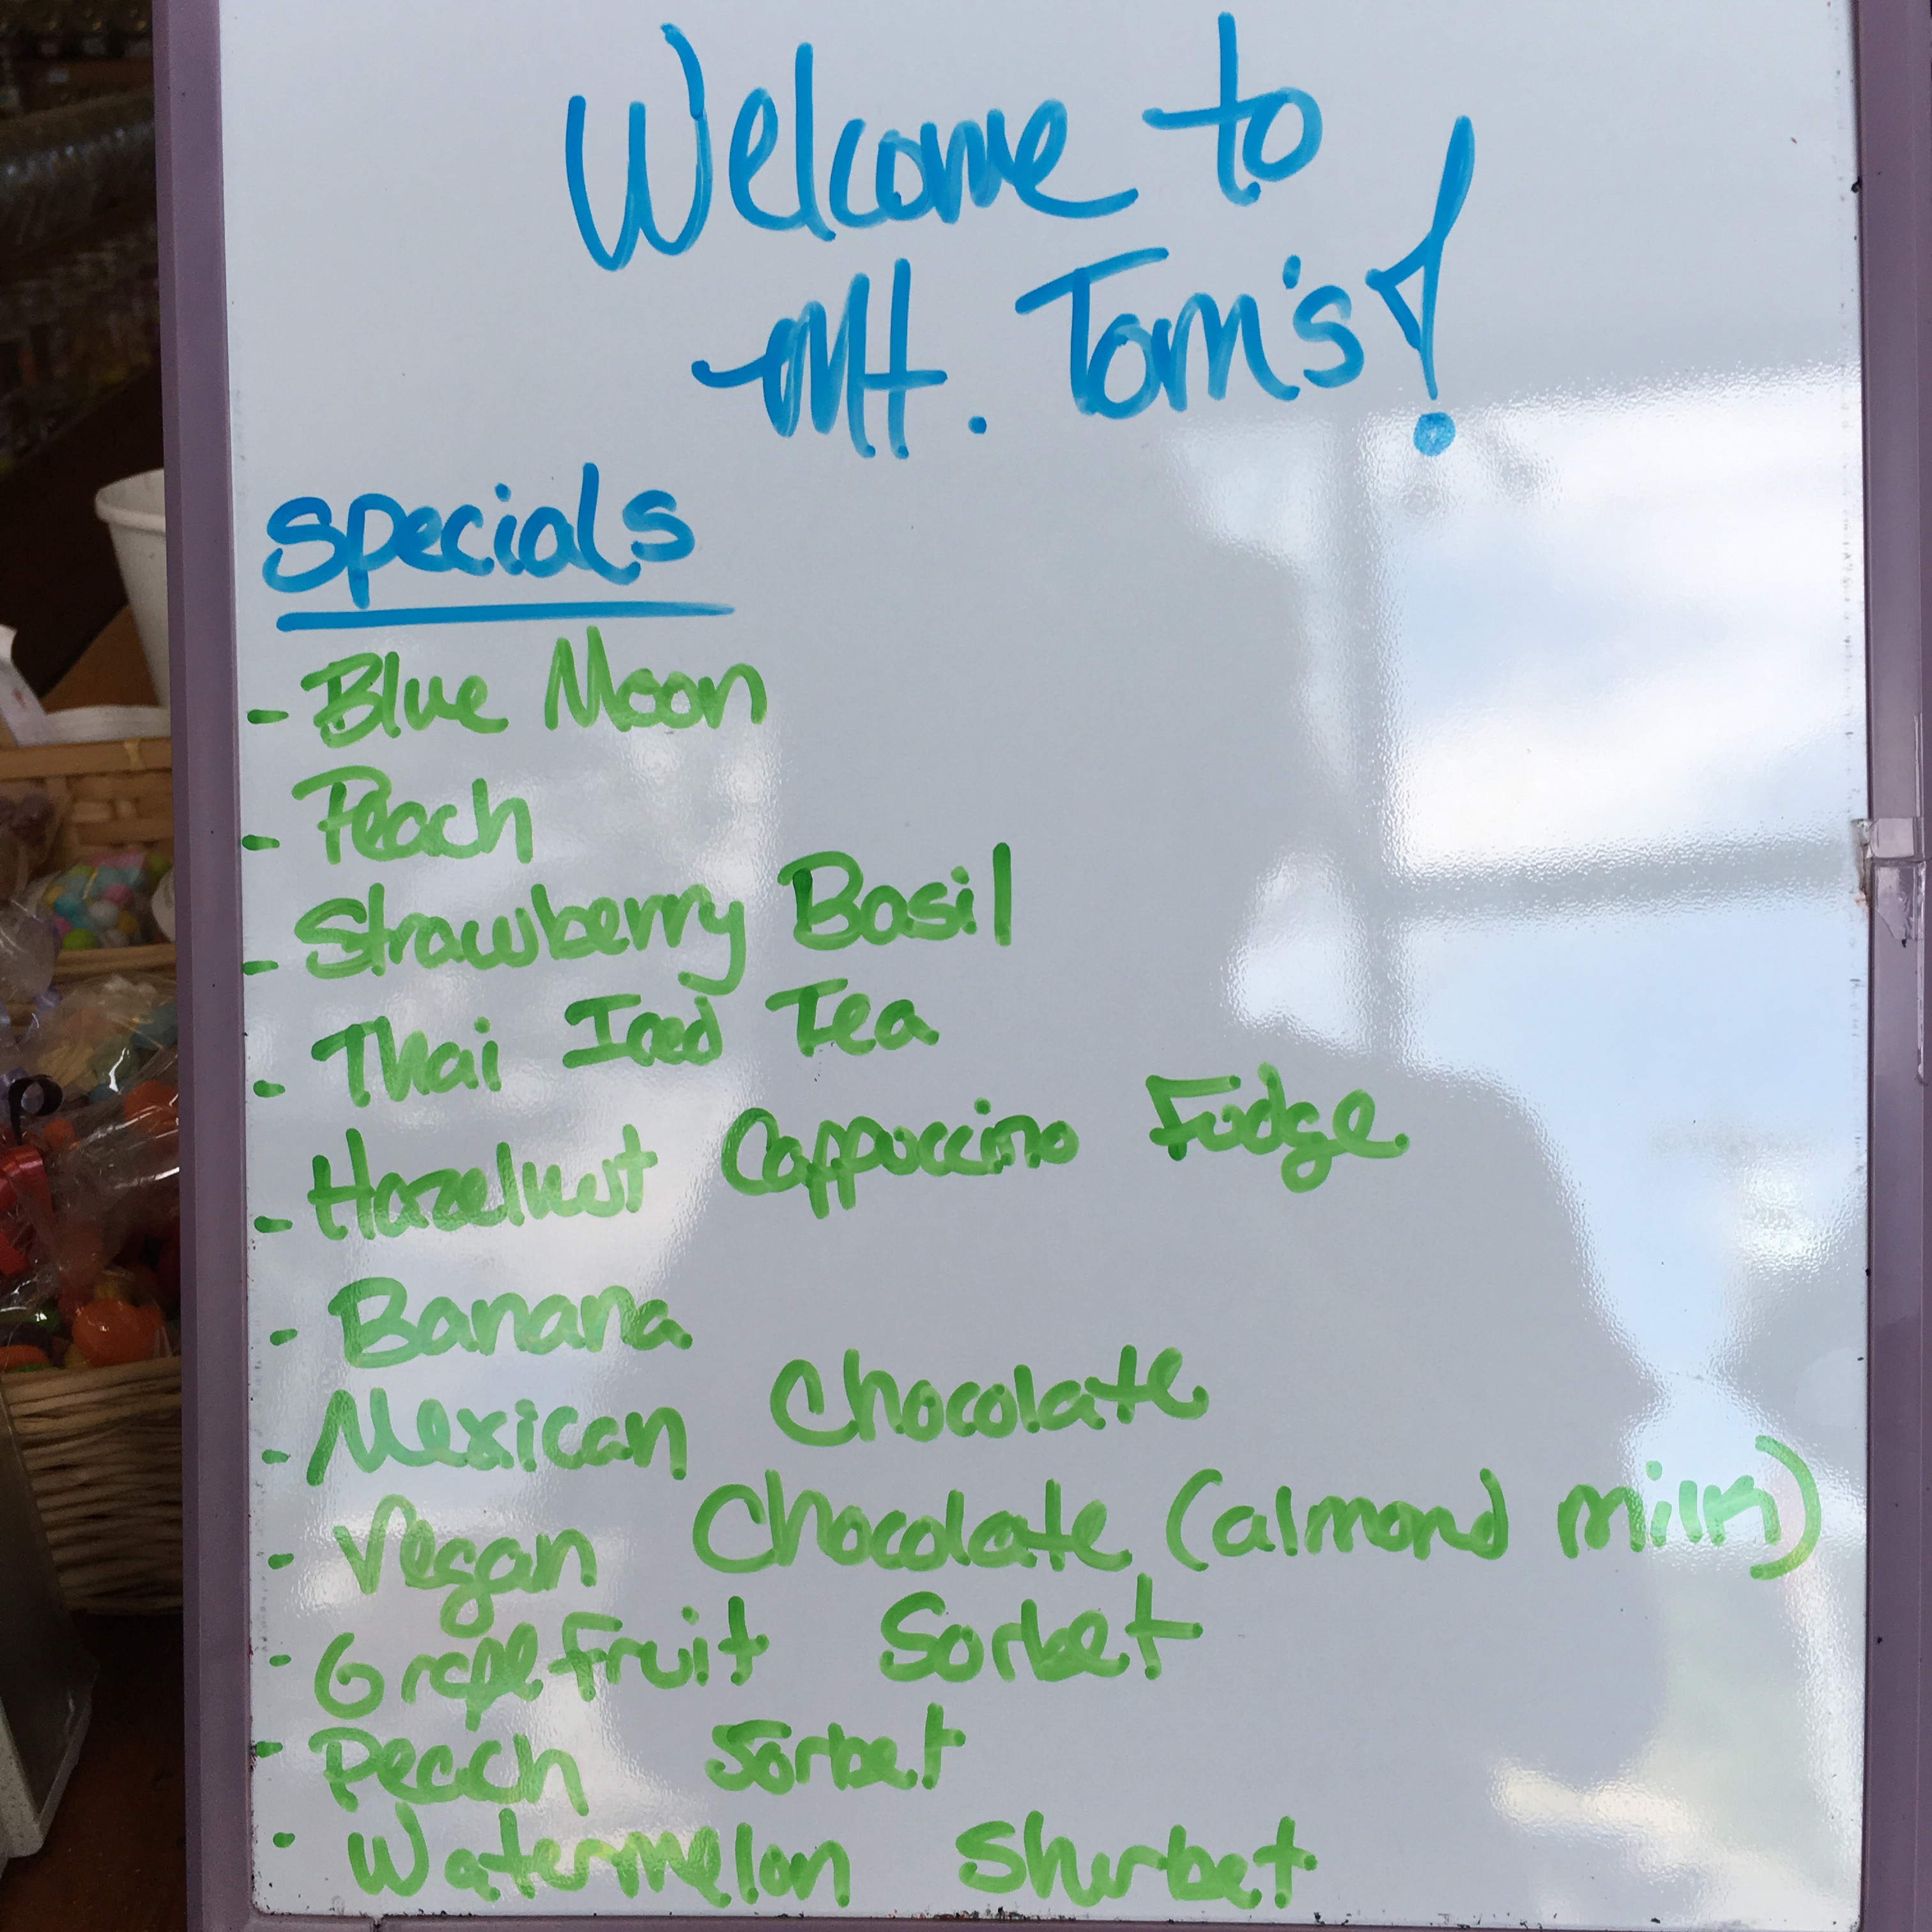 Welcome to
Mt. Tom's!
Specials
- Blue Moon
- Peach
- Strawberry Basil
- Thai Iced Tea
- Hazelnut Cappuccino Fudge
- Banana
- Mexican Chocolate
- Vegan Chocolate (almond milk)
- Grapefruit Sorbet
- Peach Sorbet
- Watermelon Sherbet